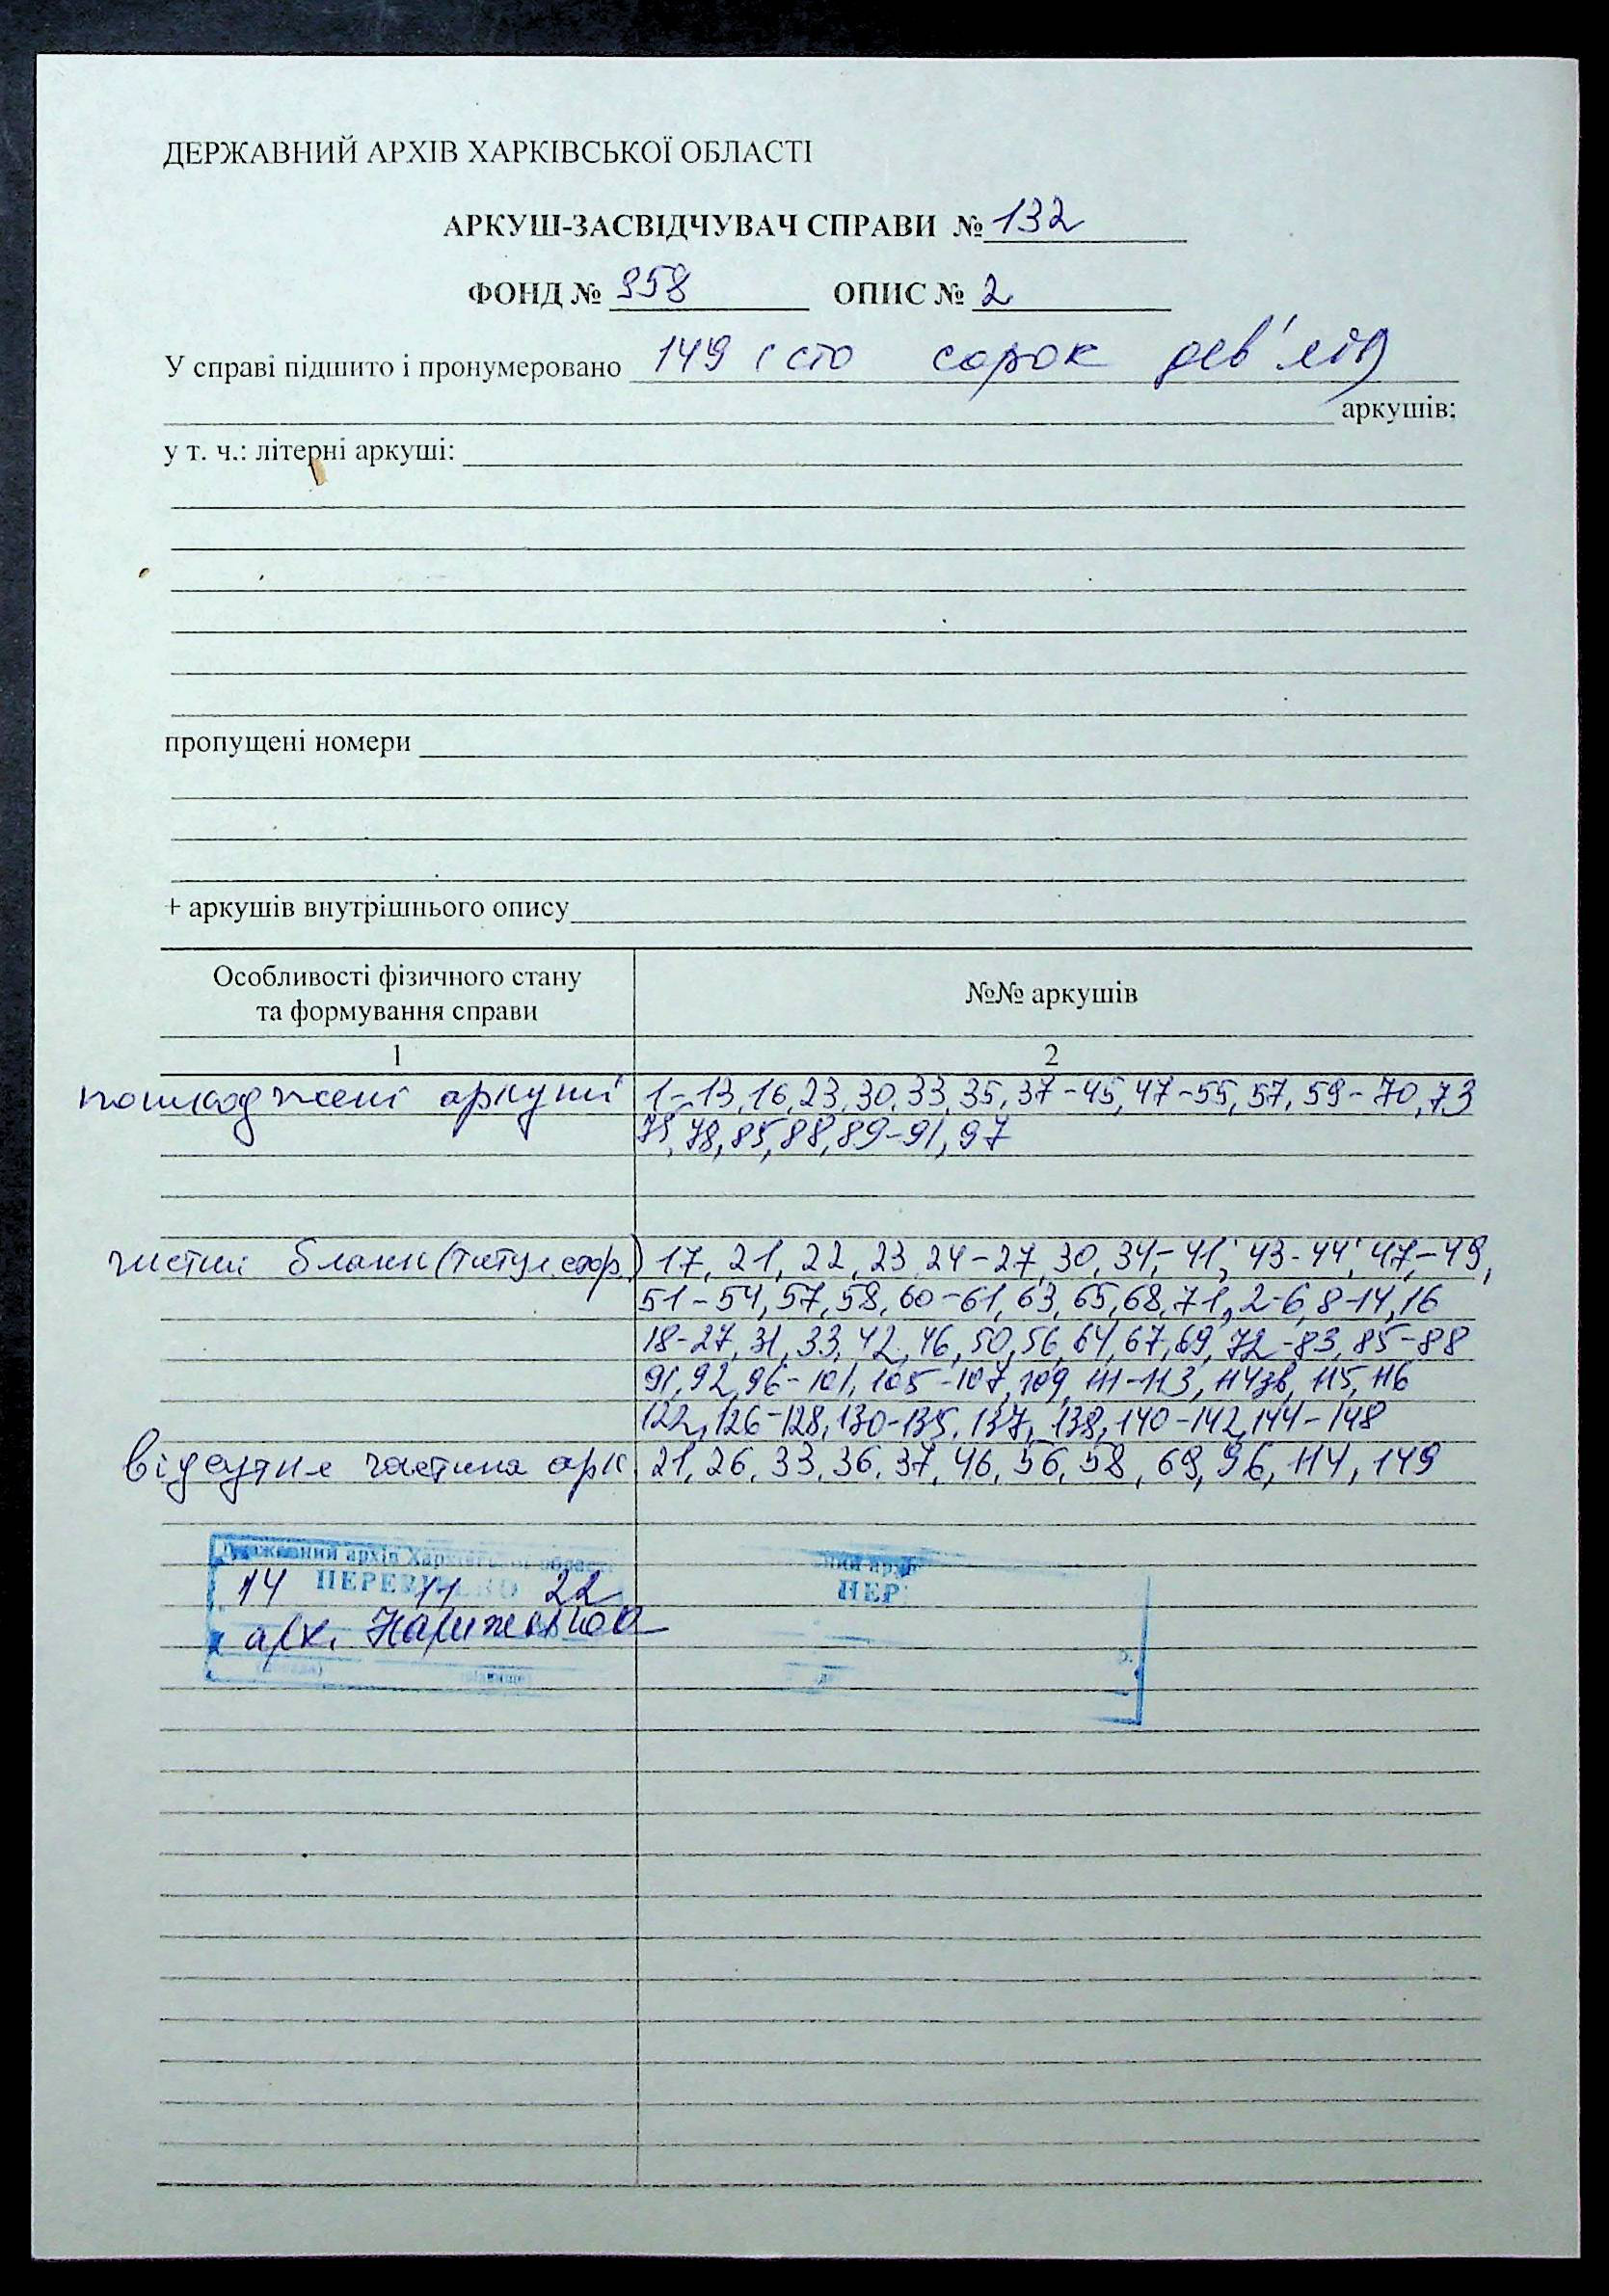 ДЕРЖАВНИЙ АРХІВ ХАРКІВСЬКОЇ ОБЛАСТІ
АРКУШ-ЗАСВІДЧУВАЧ СПРАВИ № 132
ФОНД № 958 ОПИС № 2
У справі підшито і пронумеровано 149 ( сто сорок дев'ять)
аркушів;
у т. ч.: літерні аркуші:
пропущені номери
+ аркушів внутрішнього опису
Особливості фізичного стану
та формування справи
№№ аркушів
1 2
пошкоджені аркуші 1-13, 16, 23, 30, 33, 35, 37-45, 47-55, 57, 59-70, 73
75, 78, 85, 88, 89-91, 97
чисті бланки (титул. стор.) 17, 21, 22, 23, 24-27, 30, 34-41, 43-44, 47-49,
51-54, 57, 58, 60-61, 63, 65, 68, 71, 2-6, 8-14, 16
18-27, 31, 33, 42, 46, 50, 56, 64, 67, 69, 72-83, 85-88
91, 92, 96-101, 105-107, 109, 111-113, 114зв, 115, 116
122, 126-128, 130-135, 137, 138, 140-142, 144-148
відсутня частина арк 21, 26, 33, 36, 37, 46, 56, 58, 69, 96, 114, 149
Державний архів Харківської област
ПЕРЕВІРЕНО
14 11 22
арх.
ПЕР